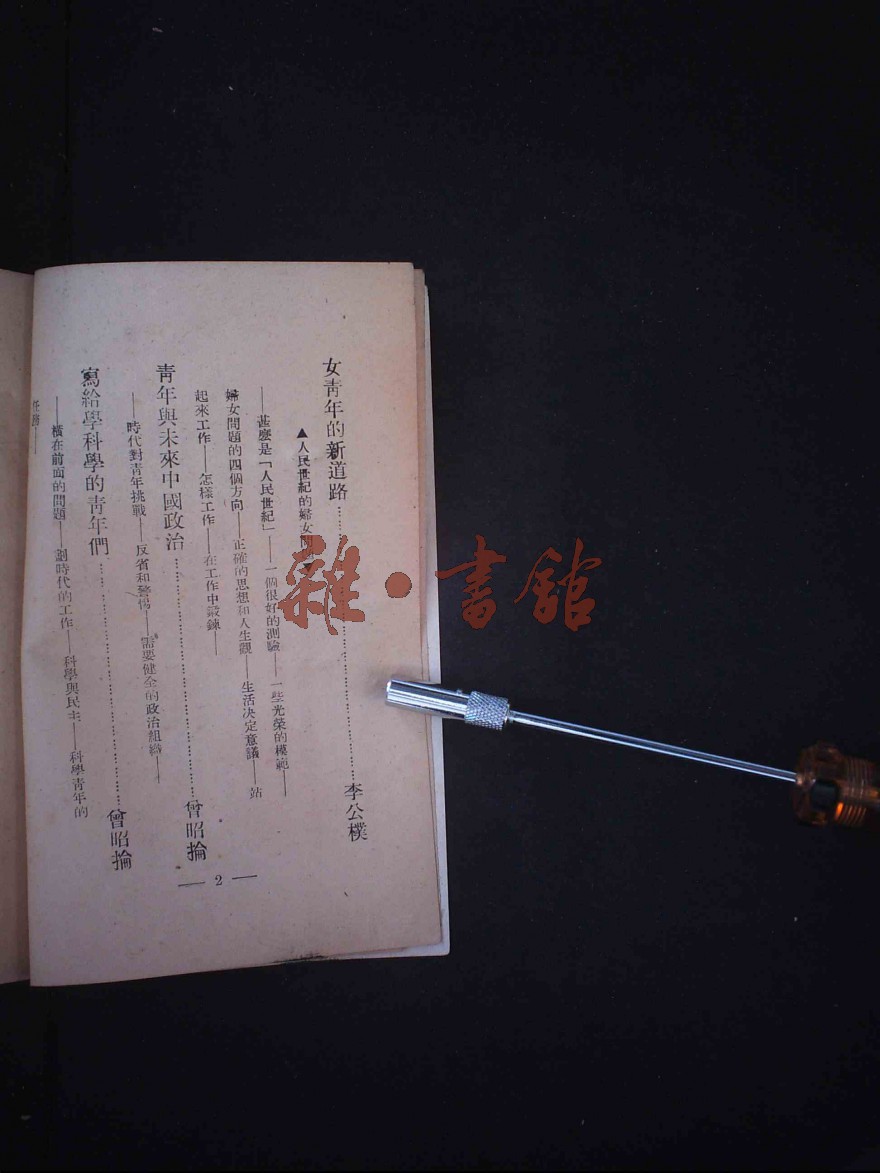 女青年的新道路……李公樸
▲人民世紀的婦女問
——甚麼是「人民世紀」——一個很好的測驗——一些光榮的模範——
婦女問題的四個方向——正確的思想和人生觀——生活決定意議——站
起來工作——怎樣工作——在工作中鍛鍊——
青年與未來中國政治……曾昭掄
——時代對青年挑戰——反省和警惕——需要健全的政治組織——
寫給學科學的青年們……曾昭掄
——橫在前面的問題——劃時代的工作——科學與民主——科學青年的
任務——
— 2 —
雜·書館